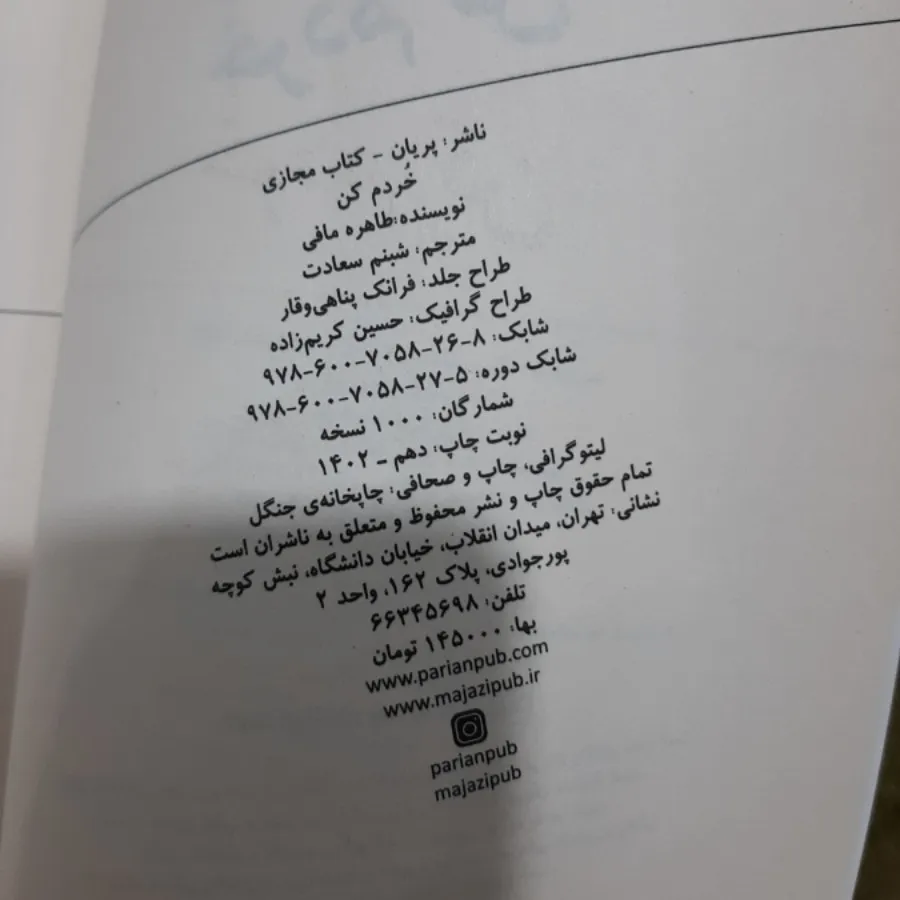 ناشر: پریان - کتاب مجازی
خُردم کن
نویسنده:طاهره مافی
مترجم: شبنم سعادت
طراح جلد: فرانک پناهی‌وقار
طراح گرافیک: حسین کریم‌زاده
شابک: ۸-۲۶-۷۰۵۸-۶۰۰-۹۷۸
شابک دوره: ۵-۲۷-۷۰۵۸-۶۰۰-۹۷۸
شمارگان: ۱۰۰۰ نسخه
نوبت چاپ: دهم ـ ۱۴۰۲
لیتوگرافی، چاپ و صحافی: چاپخانه‌ی جنگل
تمام حقوق چاپ و نشر محفوظ و متعلق به ناشران است
نشانی: تهران، میدان انقلاب، خیابان دانشگاه، نبش کوچه
پورجوادی، پلاک ۱۶۲، واحد ۲
تلفن: ۶۶۳۴۵۶۹۸
بها: ۱۴۵۰۰۰ تومان
www.parianpub.com
www.majazipub.ir
parianpub
majazipub